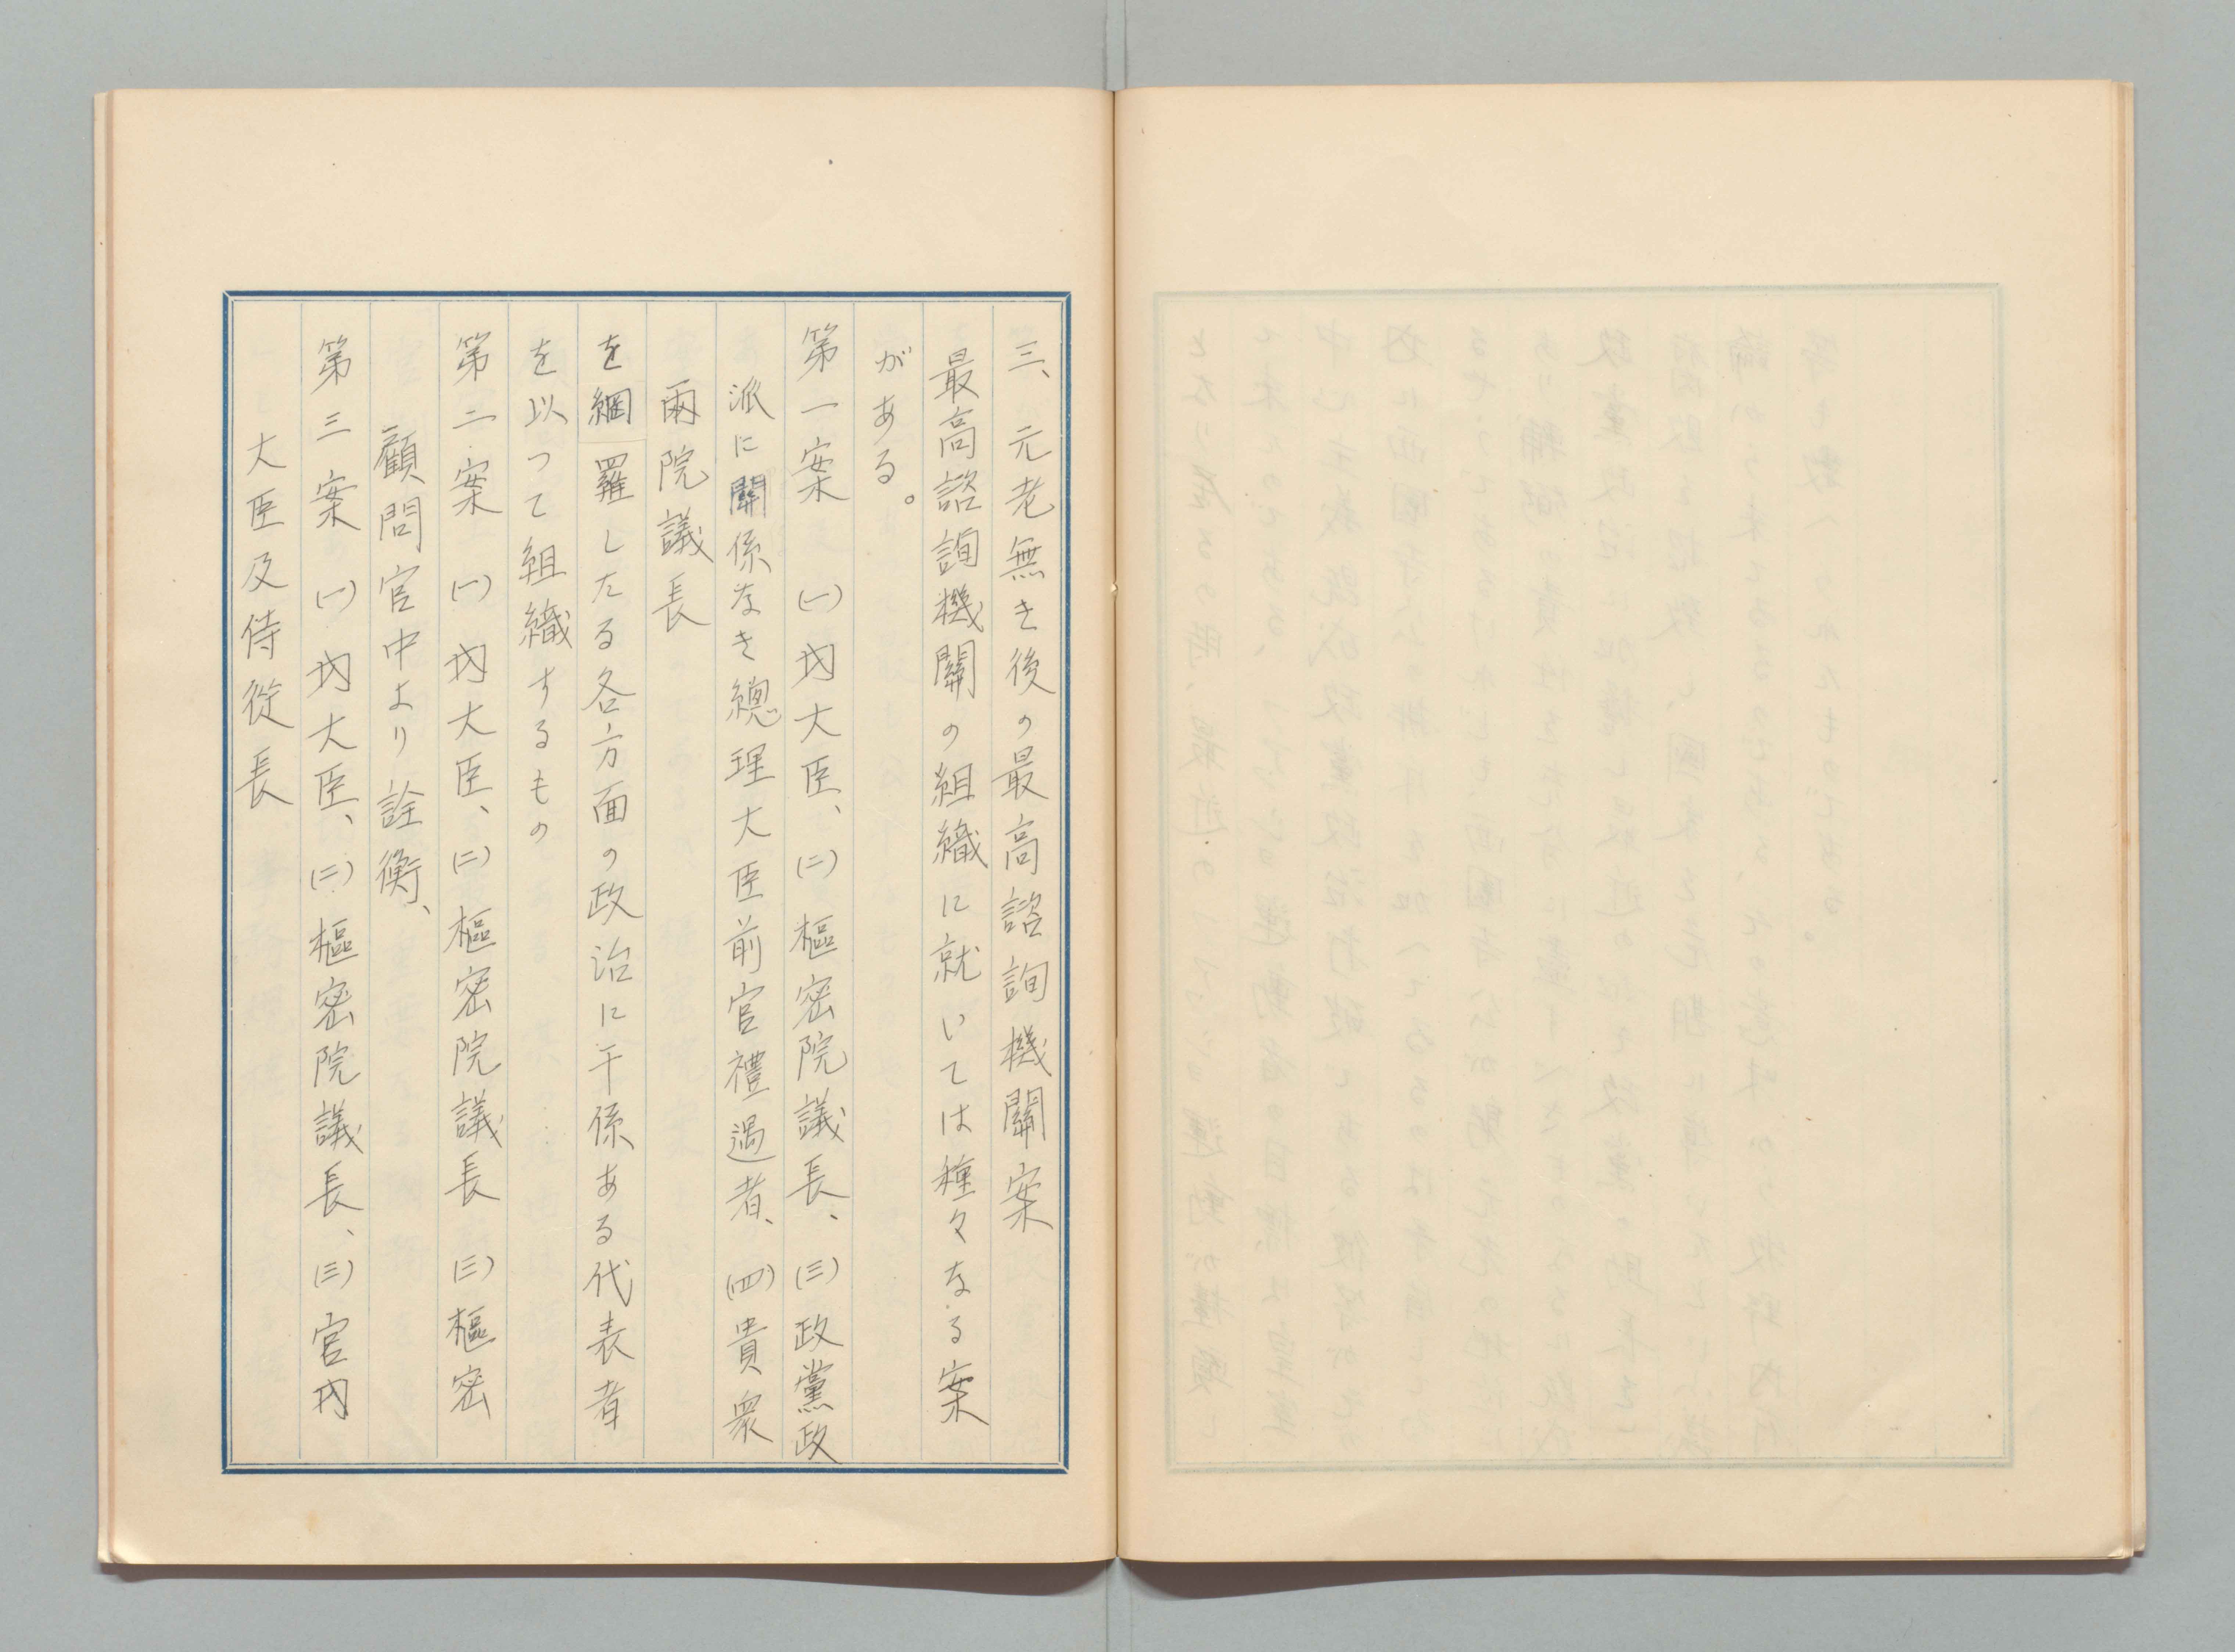 三、元老無き後の最高諮詢機關案
最高諮詢機關の組織に就いては種々なる案
がある。
第一案 (一)内大臣、(二)樞密院議長、(三)政黨政
派に關係なき總理大臣前官禮遇者、(四)貴衆
兩院議長
を網羅したる各方面の政治に干係ある代表者
を以つて組織するもの
第二案 (一)内大臣、(二)樞密院議長 (三)樞密
顧問官中より詮衡、
第三案 (一)内大臣、(二)樞密院議長、(三)宮内
大臣及侍從長